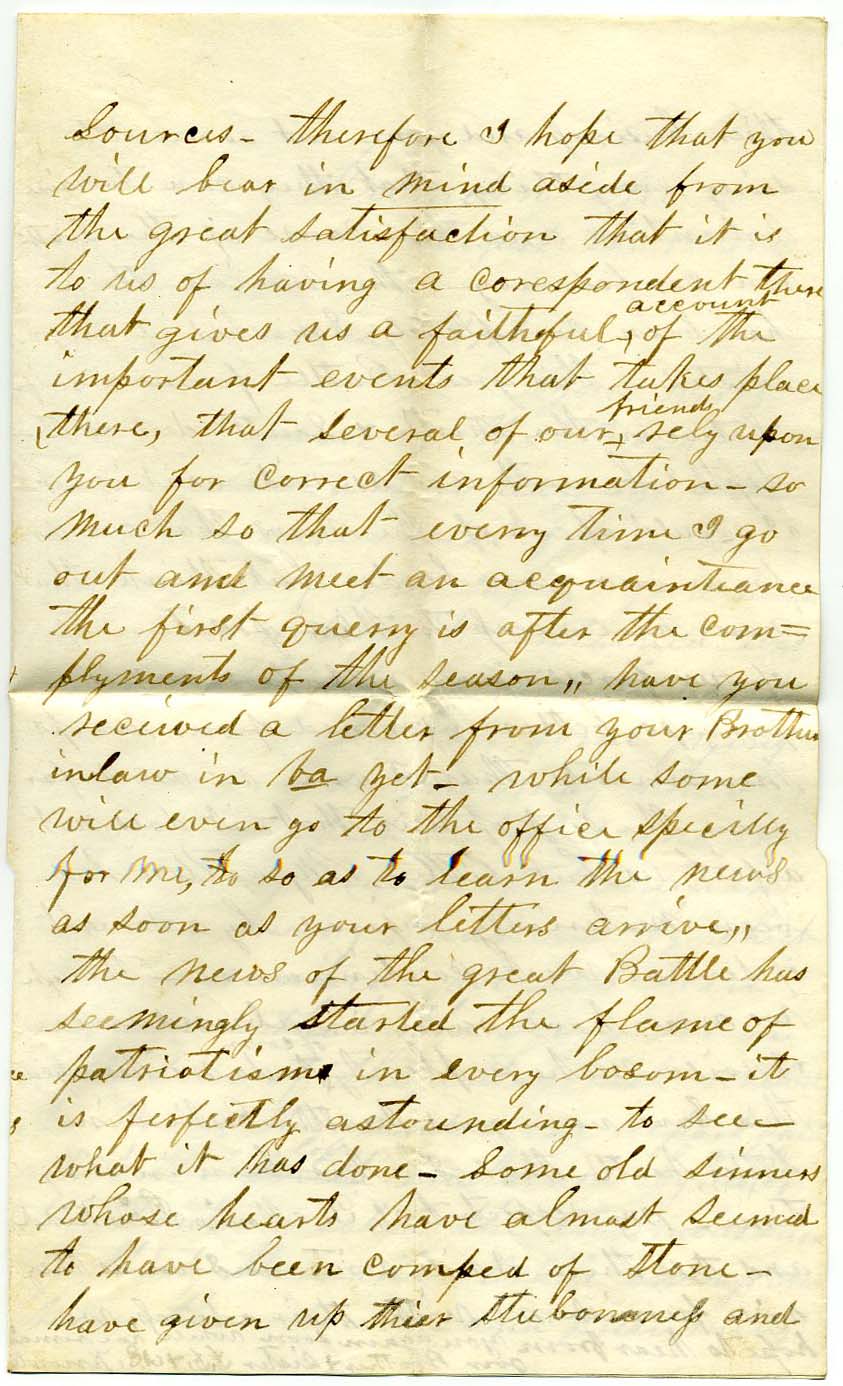 Sources - therefore I hope that you
will bear in mind aside from
the great satisfaction that it is
to us of having a corespondent there
that gives us a faithful, account of the
important events that takes place
there, that several of our, friends rely upon
you for correct information - so
much so that every time I go
out and meet an acquaintance
the first querry is after the com=
plyments of the season,, have you
received a letter from your Brother
inlaw in Va yet - while some
will even go to the office specilly
for me, to so as to learn the news
as soon as your letters arrive,,
the news of the great Battle has
seemingly started the flame of
patriotism in every bosom - it
is perfectly astounding - to see -
what it has done - Some old sinners
whose hearts have almost seemed
to have been comped of stone -
have given up thier stubonness and